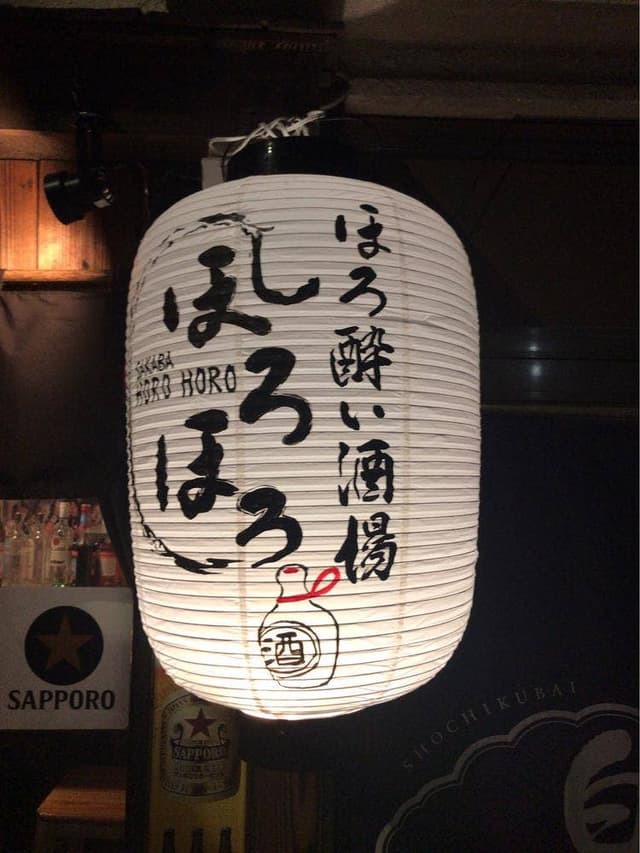 ほろ酔い酒場
ほろほろ
SAKABA
HORO HORO
酒
SAPPORO
SAPPORO
SHOCHIKUBAI